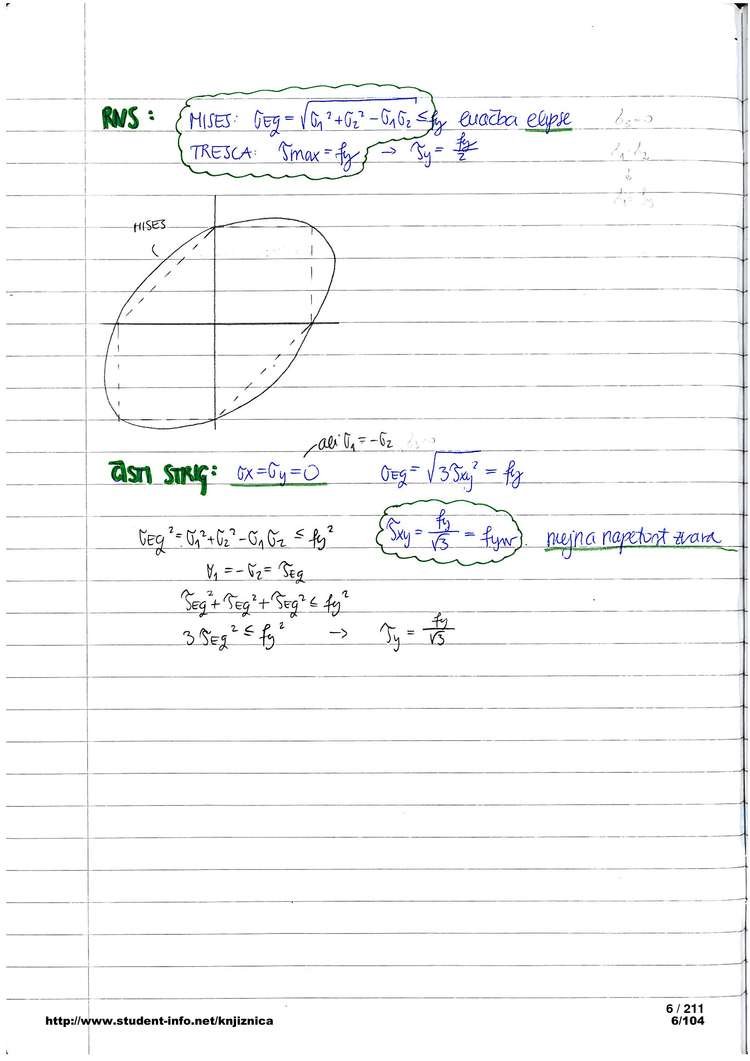 RNS: MISES: σEq = √(σ1² + σ2² - σ1σ2) ≤ fy enačba elipse
TRESCA: τmax = fy → τy = fy/2
MISES
ali σ1 = -σ2
ČISTI STRIG: σx = σy = 0 σEq = √(3τxy²) = fy
σEq² = σ1² + σ2² - σ1σ2 ≤ fy² τxy = fy/√3 = fyw mejna napetost zvara
σ1 = -σ2 = τEq
τEq² + τEq² + τEq² ≤ fy²
3τEq² ≤ fy² → τy = fy/√3
6 / 211
http://www.student-info.net/knjiznica 6/104